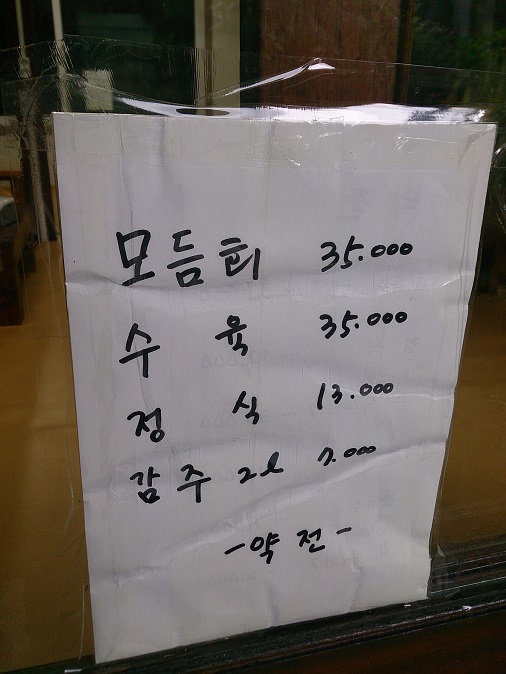 모듬회 35.000
수육 35.000
정식 13.000
감주 2l 7.000
-약전-